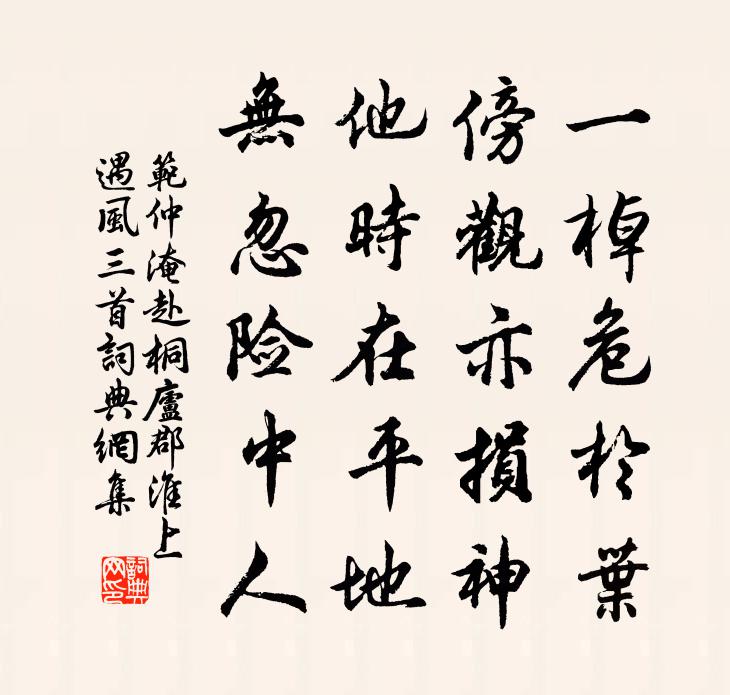 一棹危於葉
傍觀亦損神
他時在平地
無忽险中人
範仲淹赴桐廬郡淮上
遇風三首詞典網集
詞典网印